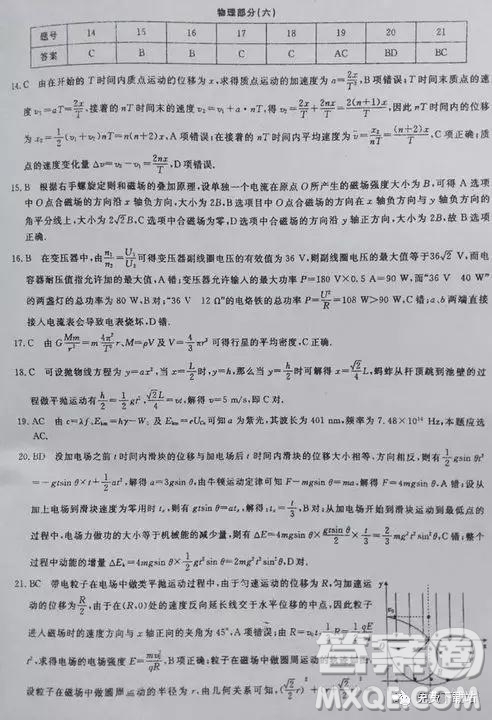 物理部分(六)
题号 14 15 16 17 18 19 20 21
答案 C B B C C AC BD BC
14.C 由在开始的T时间内质点运动的位移为x,求得质点运动的加速度为a=2x/T²,B项错误;T时间末质点的速
度v₁=aT=2x/T,接着的nT时间末的速度v₂=v₁+a·nT=2x/T+2nx/T=2(n+1)x/T,因此nT时间内的位移
为x₂=1/2(v₁+v₂)nT=n(n+2)x,A项错误;在接着的nT时间内平均速度为v̄=x₂/nT=(n+2)x/T,C项正确;质
点的速度变化量Δv=v₂-v₁=2nx/T,D项错误。
15.B 根据右手螺旋定则和磁场的叠加原理,设单独一个电流在原点O所产生的磁场强度大小为B,可得A选项
中O点合磁场为零,B选项中O点合磁场的方向在x轴负方向与y轴负方向的
角平分线上,大小为2√2B,C选项中合磁场为零,D选项中合磁场的方向沿y轴正方向,大小为2B,故B选项
正确.
16.B 在变压器中,由n₁/n₂=U₁/U₂可得变压器副线圈电压的有效值为36 V,则副线圈电压的最大值等于36√2 V,而电
容器耐压值指允许加的最大值,A错;变压器允许输入的最大功率P=180 V×0.5 A=90 W,而“36 V 40 W”
的两盏灯的总功率为80 W,B对;“36 V 12 Ω”的电烙铁的总功率P=U²/R=108 W>90 W,C错;a、b两端直接
接入电流表会导致电表烧坏,D错.
17.C 由GMm/r²=m4π²/T²r、M=ρV及V=4/3πr³可得行星的平均密度,C正确.
18.C 可设抛物线方程为y=ax²,当x=L/2时,y=h,那么当y=h/2时可解得x=√2L/4,蚂蚱从杆顶跳到池壁的过
程做平抛运动有h/2=1/2gt²,√2L/4=vt,解得v=5 m/s,即C对.
19.AC 由c=λf、Eₖₘ=hγ-W、及Eₖₘ=eU꜀可知a为紫光,其波长为401 nm,频率为7.48×10¹⁴ Hz,本题应选
AC.
20.BD 没加电场之前t时间内滑块的位移与加电场后t时间内滑块的位移大小相等、方向相反,则有1/2gsinθt²
=-gtsinθ×t+1/2at²,解得a=3gsinθ,由牛顿运动定律可知F-mgsinθ=ma,解得F=4mgsinθ,A错;设从
加上电场到滑块速度为零用时t₁,则有0=-gtsinθ+at₁,解得t₁=t/3,B对;从加电场开始到滑块运动到最低点的
过程中,电场力做功的大小等于机械能的减少量,则有ΔE=4mgsinθ×gtsinθ/2×t/3=2/3mg²t²sin²θ,C错;整个
过程中动能的增量ΔEₖ=4mgsinθ×1/2gt²sinθ=2mg²t²sin²θ,D对.
21.BC 带电粒子在电场中做类平抛运动过程中,由于匀速运动的位移为R,匀加速运
动的位移为R/2,由于在(R,0)处的速度反向延长线交于水平位移的中点,因此粒子
进入磁场时的速度方向与x轴正向的夹角为45°,A项错误;由R=v₀t,
t²,求得电场的电场强度E=mv₀²/qR,B项正确;
设粒子在磁场中做圆周运动的半径为r,由几何关系可知,
答案圈
MXQE.COM